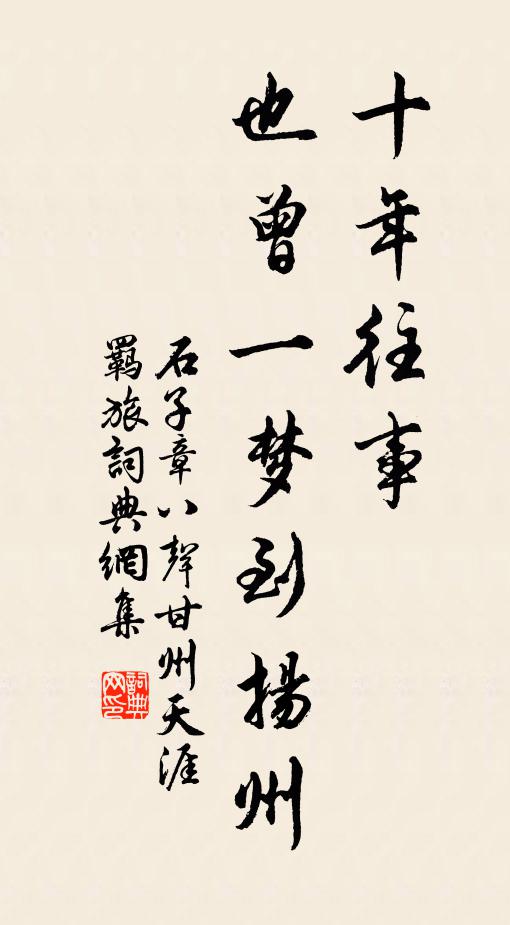 十年往事
也曾一梦到揚州
石子章八聲甘州天涯
羈旅詞典網集
詞典网印